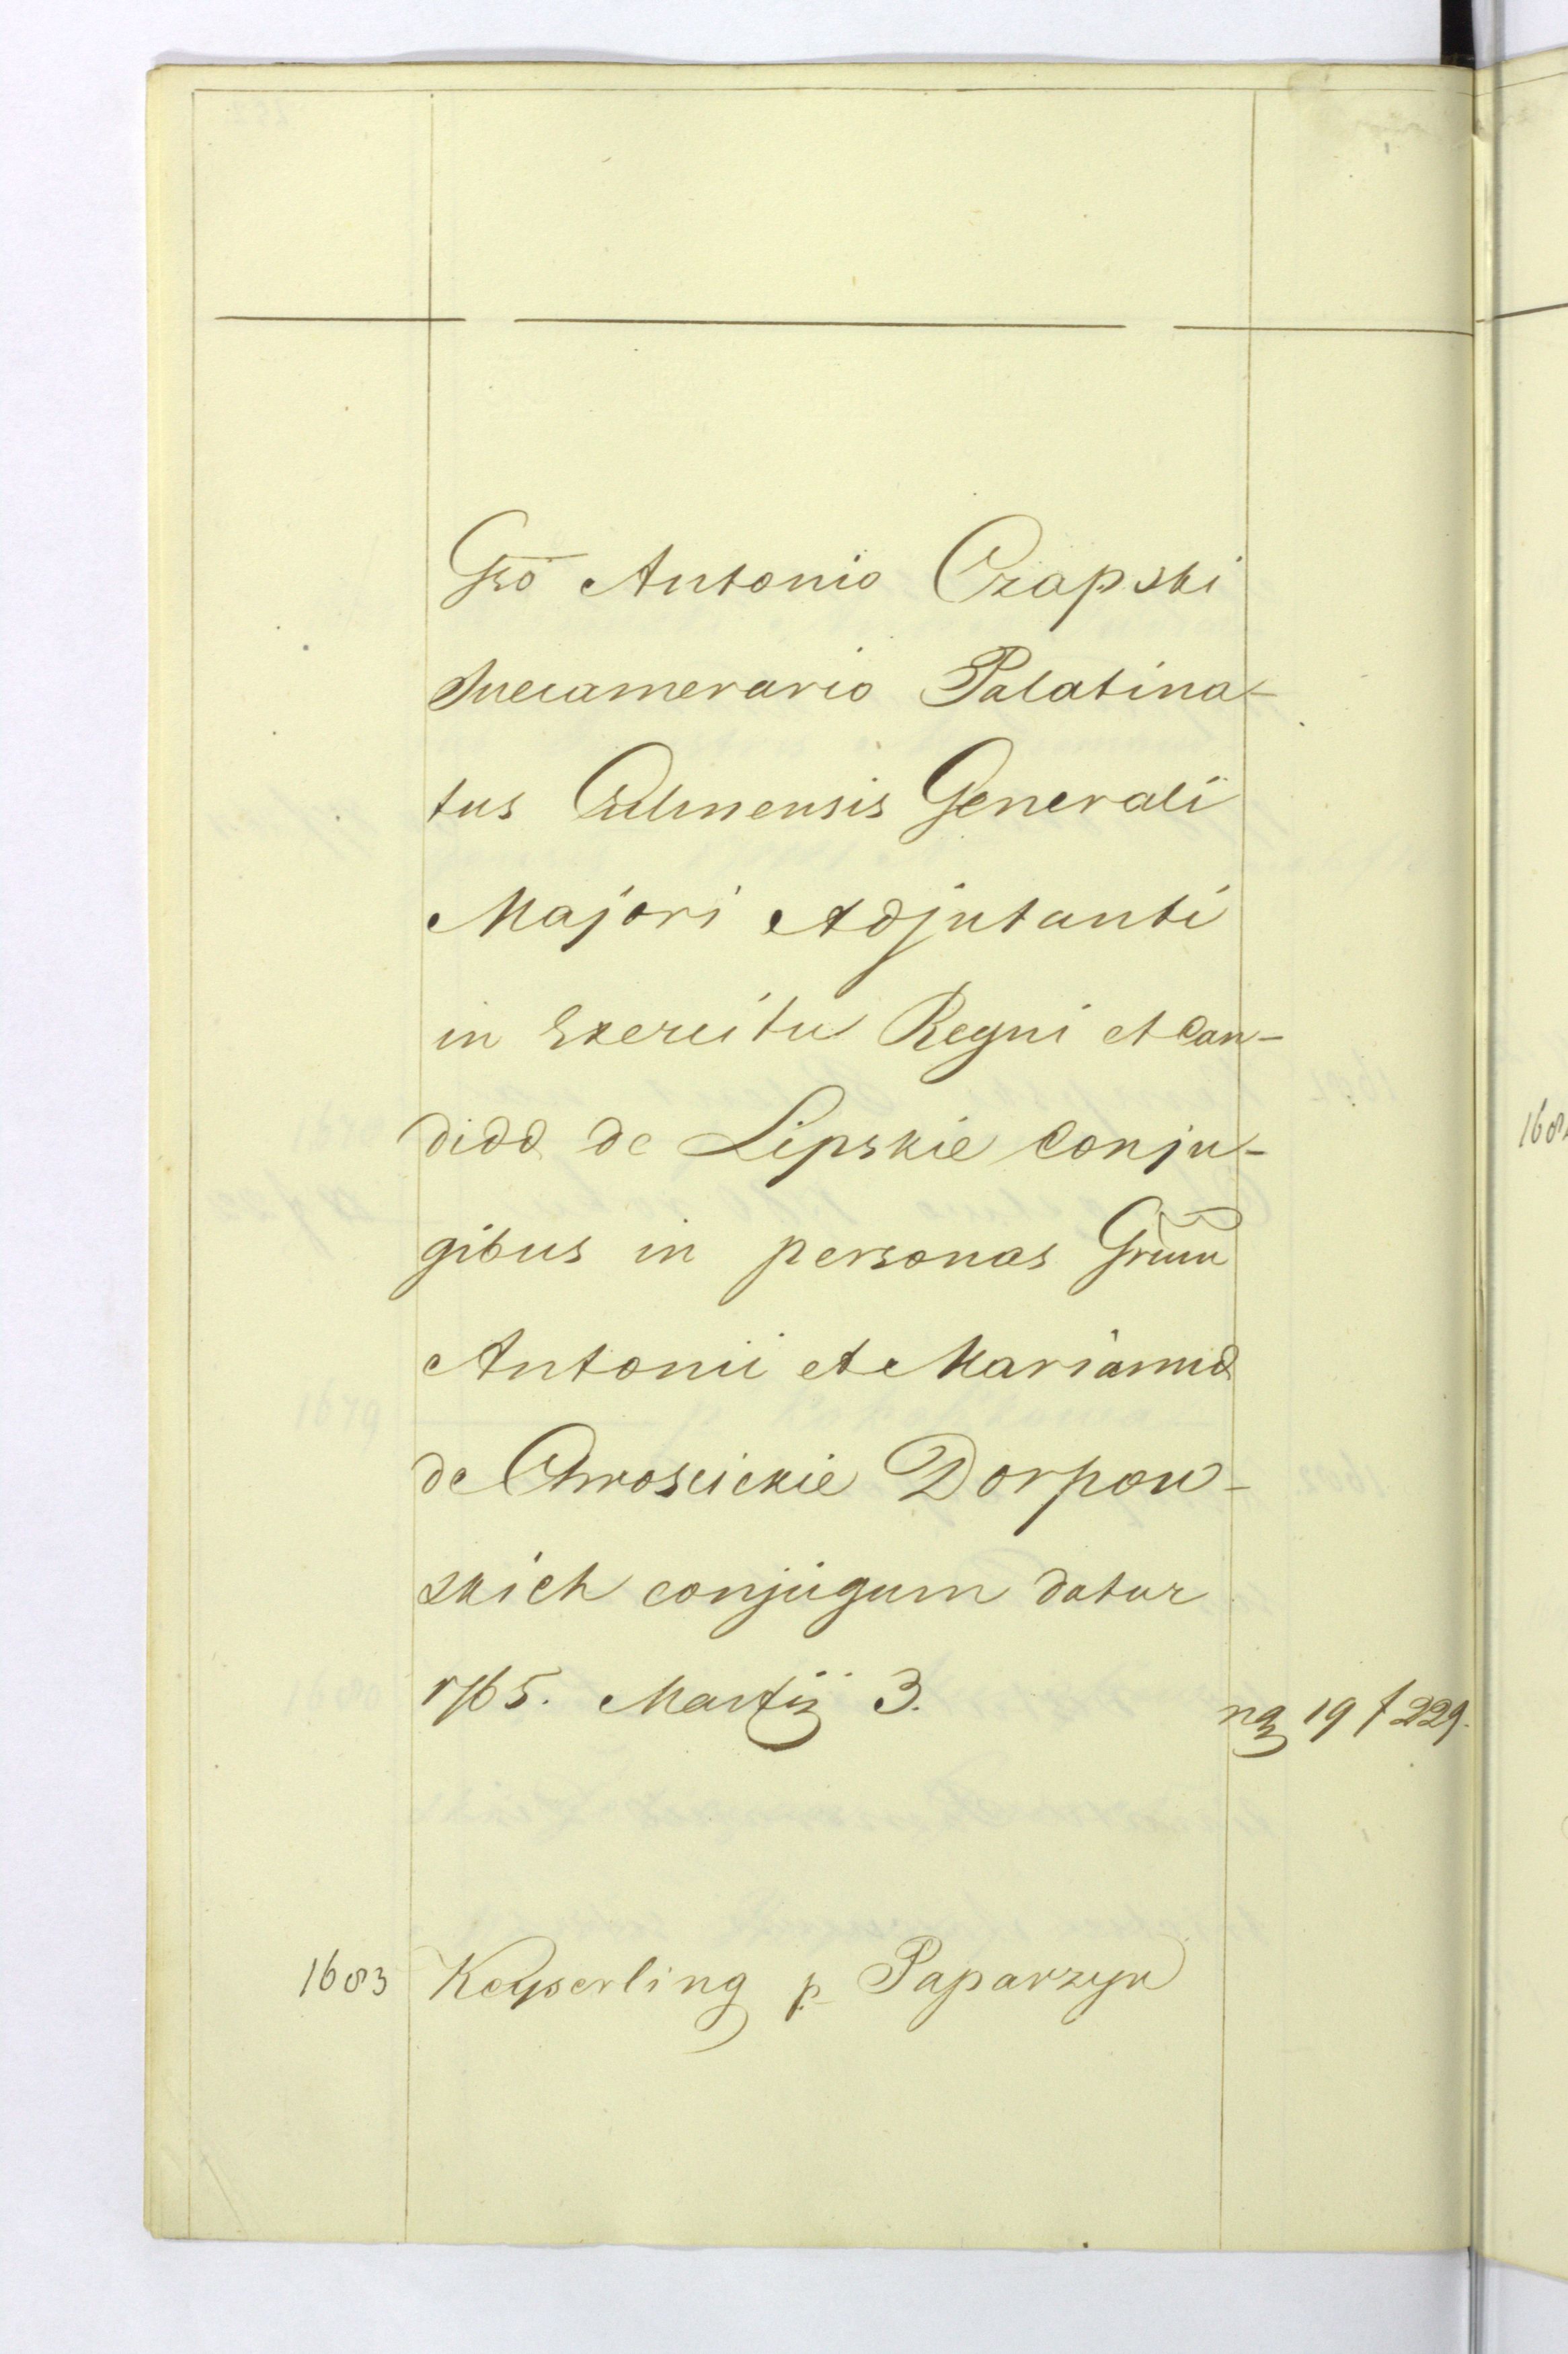 Gso Antonio Czapski
Succamerario Palatina-
tus Culmensis Generali
Majori Adjutanti
in Exercitu Regni et Can-
didæ de Lipskie Conju-
gibus in personas Grum
Antonii et Mariannæ
de Chroscickie Dorpow-
skich conjugum datur
1765. Martij 3. ng 19 f 229.
1683 Keyserling p Paparzyn